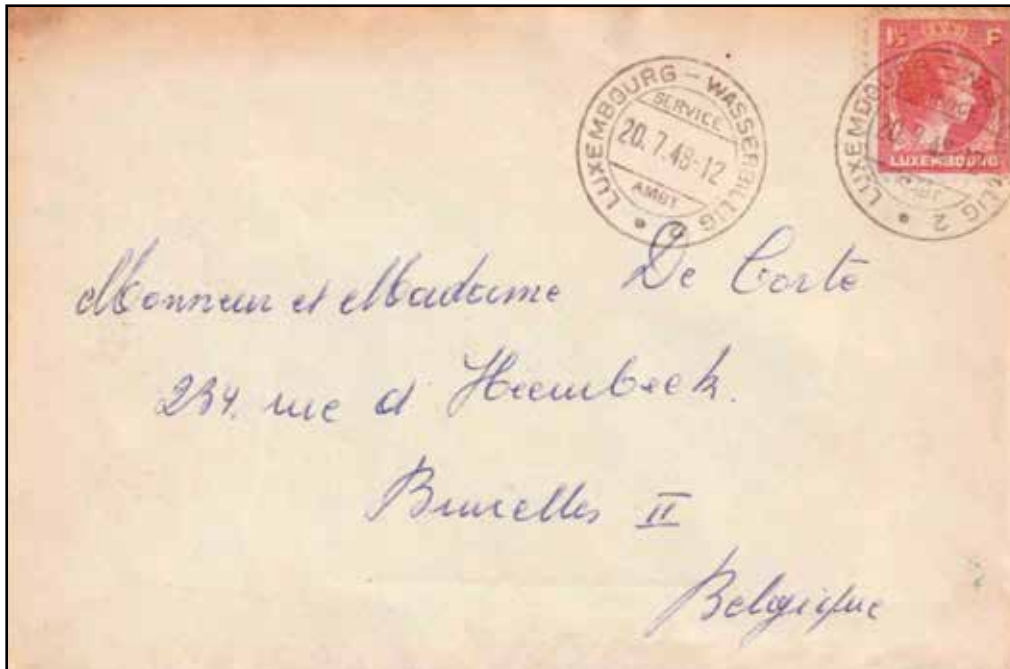 1½ F
LUXEMBOURG
LUXEMBOURG - WASSERBILLIG
SERVICE
20.7.48-12
AMBT
2
LUXEMBOURG
20.7.48-12
2
Monsieur et Madame De Corte
234. rue d Heembeek.
Bruxelles II
Belgique